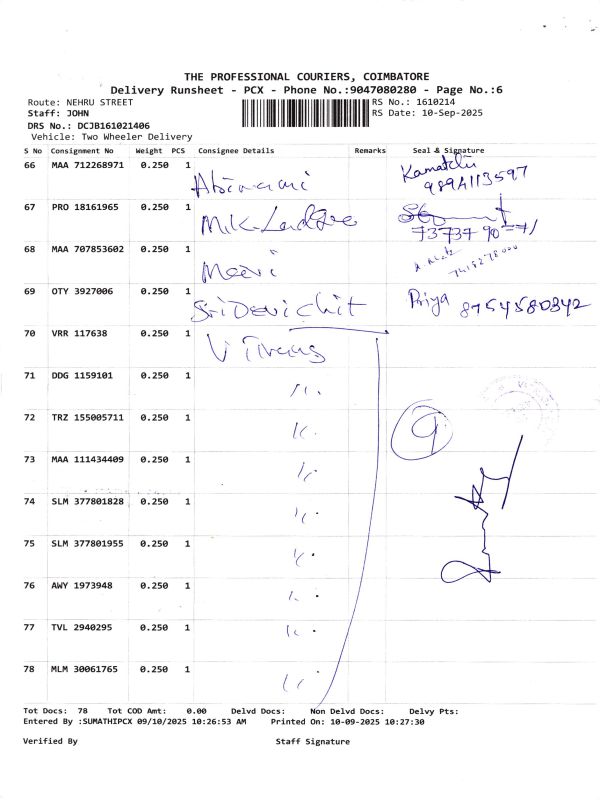 THE PROFESSIONAL COURIERS, COIMBATORE
Delivery Runsheet - PCX - Phone No.:9047080280 - Page No.:6
Route: NEHRU STREET RS No.: 1610214
Staff: JOHN RS Date: 10-Sep-2025
DRS No.: DCJB161021406
Vehicle: Two Wheeler Delivery
S No Consignment No Weight PCS Consignee Details Remarks Seal & Signature
66 MAA 712268971 0.250 1 Kamatchi
9894113597
67 PRO 18161965 0.250 1 M.K.
68 MAA 707853602 0.250 1 Meevi
69 OTY 3927006 0.250 1 SriDevichit Priya 8754580342
70 VRR 117638 0.250 1 V
71 DDG 1159101 0.250 1
72 TRZ 155005711 0.250 1 9
73 MAA 111434409 0.250 1
74 SLM 377801828 0.250 1
75 SLM 377801955 0.250 1
76 AWY 1973948 0.250 1
77 TVL 2940295 0.250 1
78 MLM 30061765 0.250 1
Tot Docs: 78 Tot COD Amt: 0.00 Delvd Docs: Non Delvd Docs: Delvy Pts:
Entered By :SUMATHIPCX 09/10/2025 10:26:53 AM Printed On: 10-09-2025 10:27:30
Verified By Staff Signature